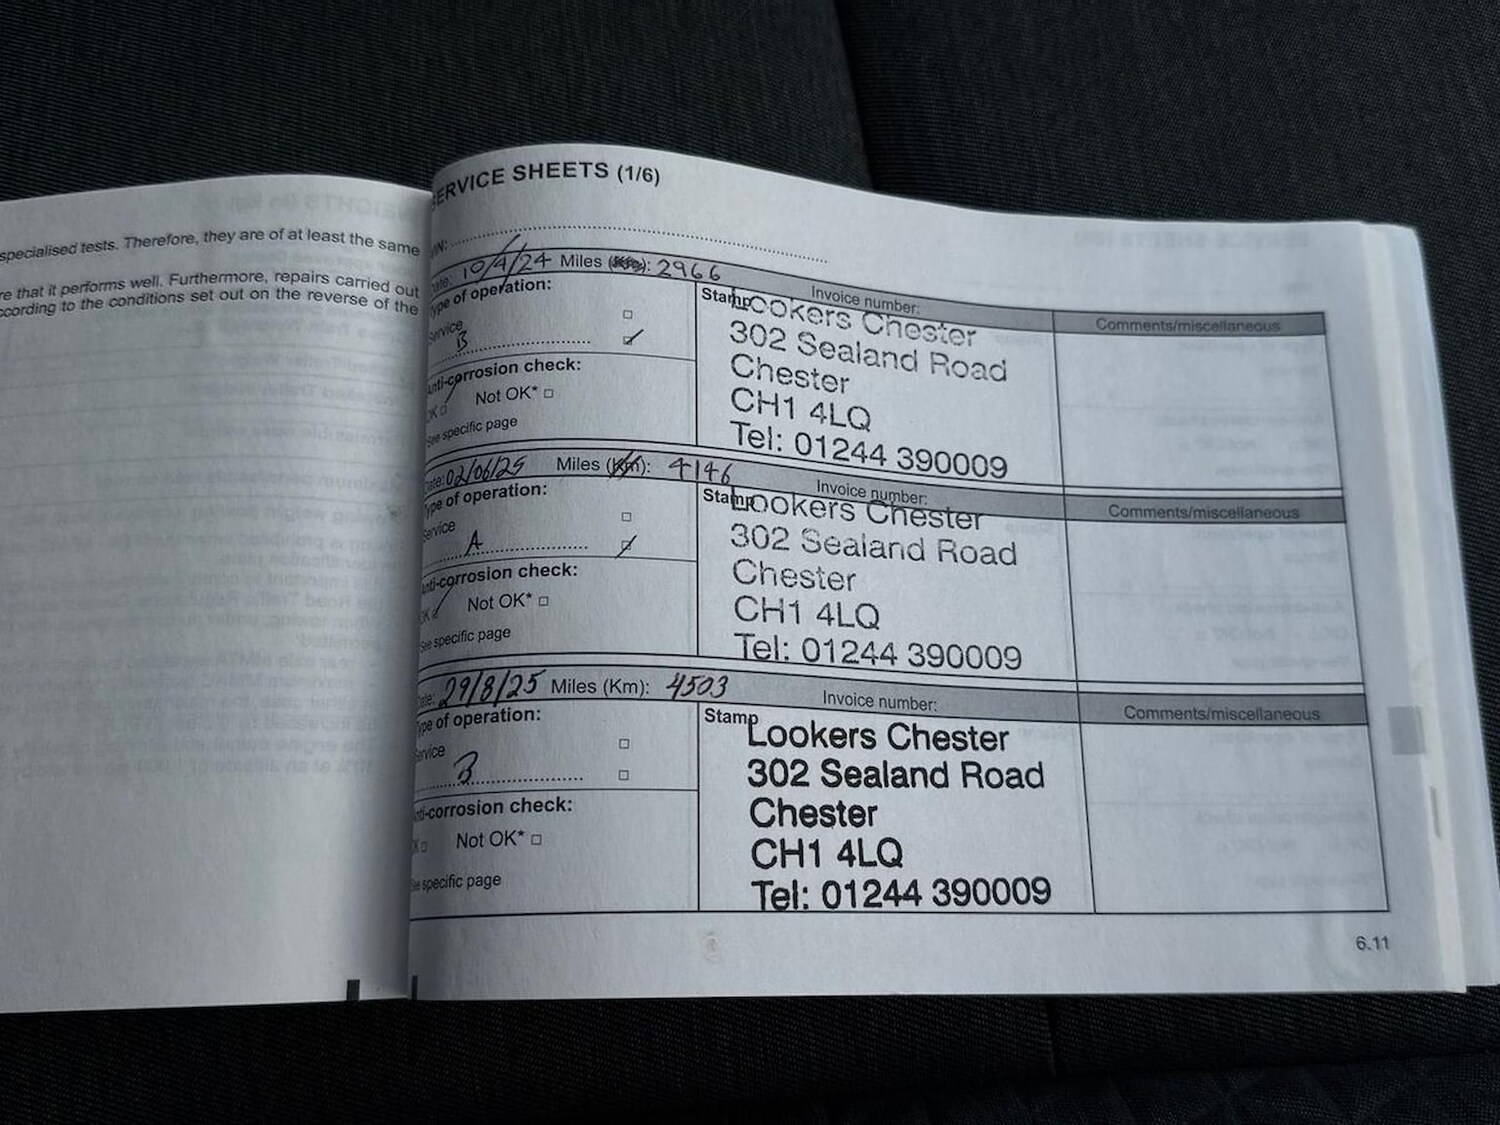 specialised tests. Therefore, they are of at least the same
re that it performs well. Furthermore, repairs carried out
ccording to the conditions set out on the reverse of the
ERVICE SHEETS (1/6)
VIN:
ate: 10/4/24 Miles (Km): 2966
Type of operation:
Service
B
Anti-corrosion check:
OK Not OK*
See specific page
Stamp
Invoice number:
Lookers Chester
302 Sealand Road
Chester
CH1 4LQ
Tel: 01244 390009
Comments/miscellaneous
ate: 02/06/25 Miles (Km): 4146
Type of operation:
Service
A
nti-corrosion check:
OK Not OK*
See specific page
Stamp
Invoice number:
Lookers Chester
302 Sealand Road
Chester
CH1 4LQ
Tel: 01244 390009
Comments/miscellaneous
ate: 29/8/25 Miles (Km): 4503
ype of operation:
ervice
B
ti-corrosion check:
K Not OK*
ee specific page
Stamp
Invoice number:
Lookers Chester
302 Sealand Road
Chester
CH1 4LQ
Tel: 01244 390009
Comments/miscellaneous
6.11